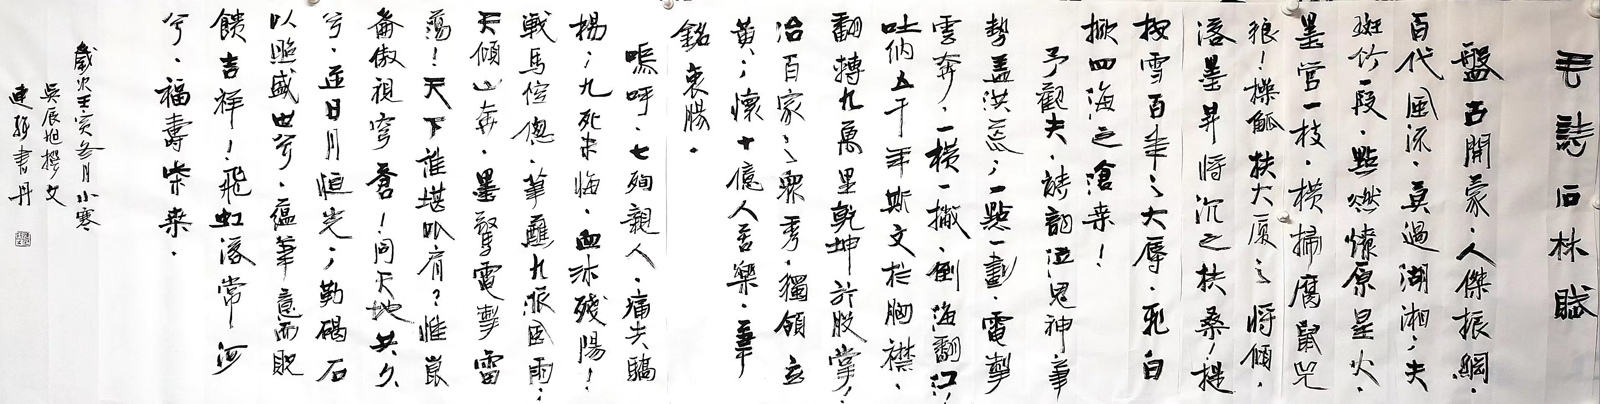 毛誌石林賦
盤古開蒙、人傑振綱、
百代風流、莫過湖湘；夫
斑竹一段、點燃燎原星火、
墨管一枝、橫掃腐鼠兕
狼！操觚扶大厦之將傾、
落墨昇將沉之扶桑！提
按雪百年之大辱、飛白
掀四海之滄桑！
予觀夫、詩詞泣鬼神、筆
勢蓋洪荒；一點一劃、電掣
雲奔、一橫一撇、倒海翻江；
吐納五千年斯文於胸襟、
翻轉九萬里乾坤於股掌；
冶百家之眾秀、獨領玄
黃；懷十億人苦樂、筆
銘衷腸、
嗚呼、七殉親人、痛失驕
楊；九死未悔、血沐殘陽！
戰馬倥傯、筆蘸九派風雨；
天傾山奔、墨驚電掣雷
蕩！天下誰堪比肩？惟崑
崙傲視穹蒼！同天地共久
兮、並日月恒光；勒碣石
以照盛世兮、蘊筆意而貺
饋吉祥！飛虹滾常河
兮、福壽咪桑、
歲次壬寅冬月小寒
吳辰旭撰文
連雄書丹